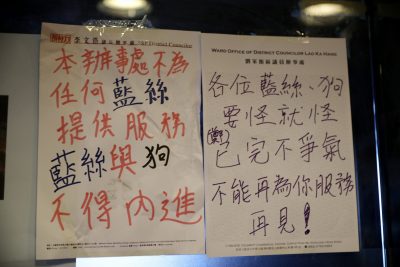 李文浩議員辦事處
District Councillor
本辦事處不為
任何藍絲
提供服務
藍絲與狗
不得內進
WARD OFFICE OF DISTRICT COUNCILOR LAO KA HANG
劉家衡區議員辦事處
各位藍絲、狗
要怪就怪
(鄭)
已完不爭氣
不能再為你服務
再見!